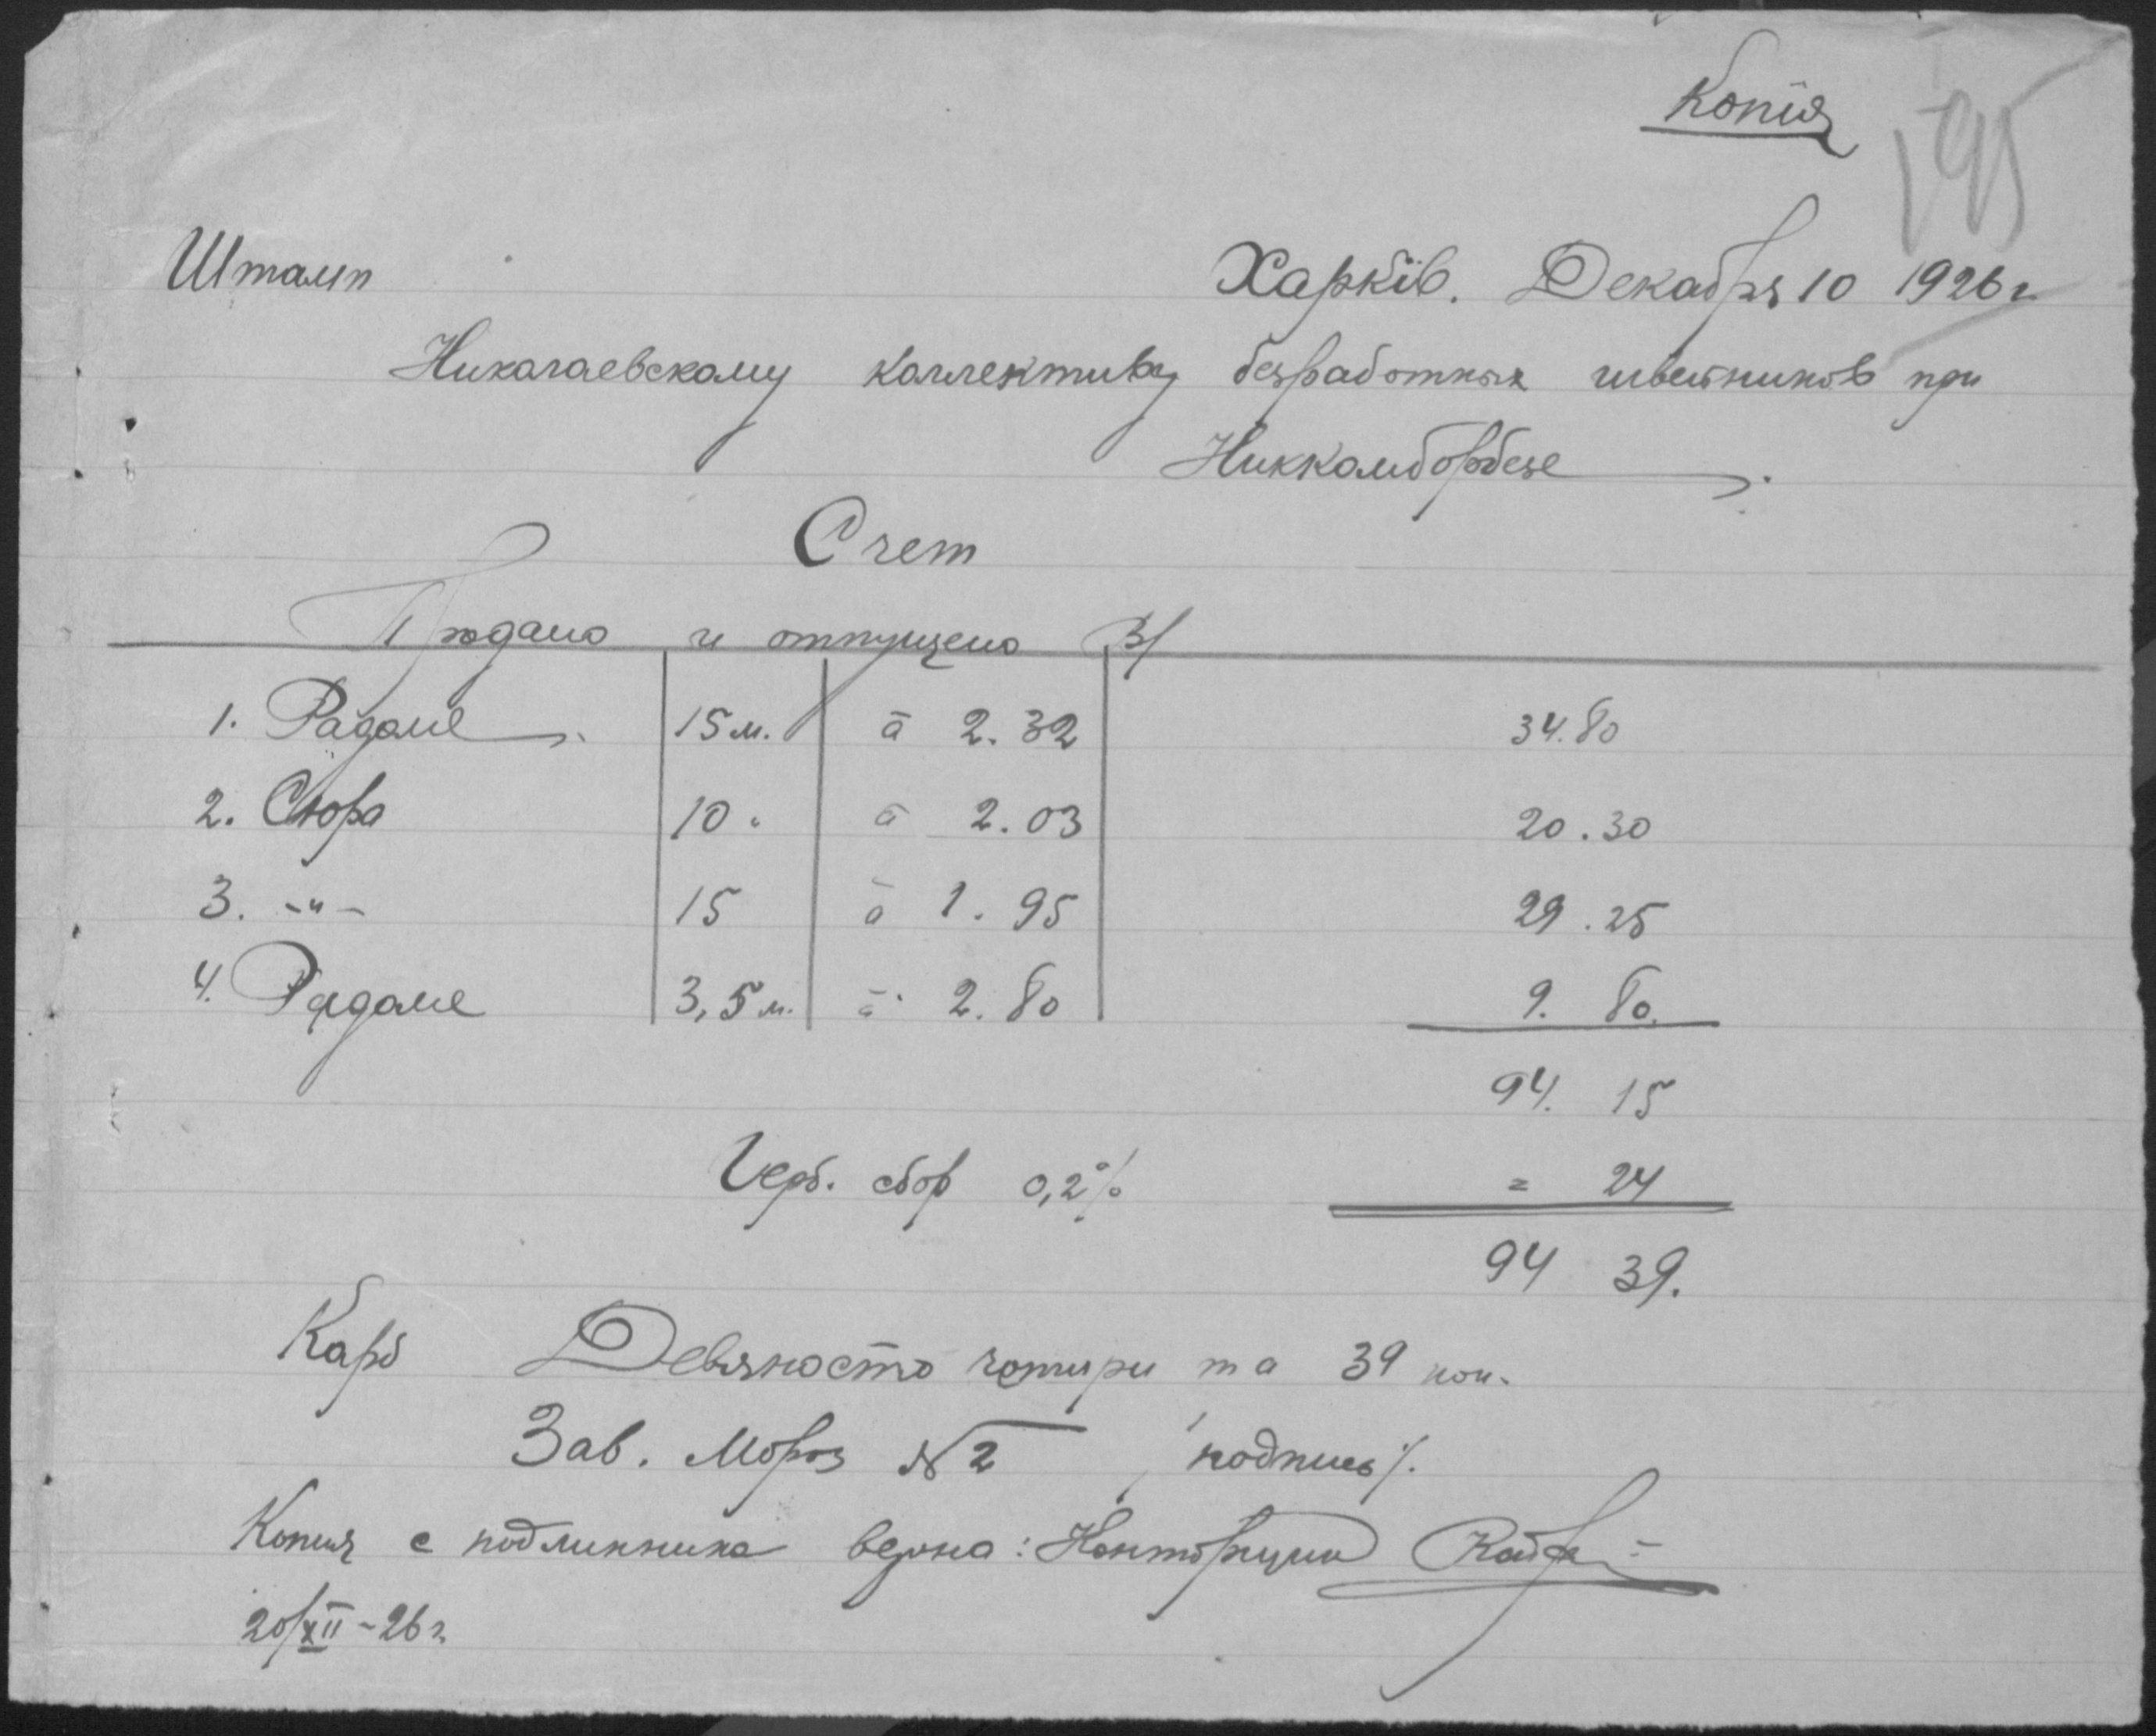 Копія
195
Штамп
Харкiв. Декабря 10 1926 г
Николаевскому коллективу безработных швейников при
Никкомборбезе
Счет
Продано и отпущено В/
1. Радоме 15 м. à 2.32 34.80
2. Сюра 10 " à 2.03 20.30
3. -"- 15 à 1.95 29.25
4. Радоме 3,5 м. à 2.80 9.80
94.15
Герб. сбор 0,2% = 24
94 39.
Карб Девяносто чотири та 39 коп.
Зав. №2 /подпись/.
Копия с подлинника верна: Конторщик
20/XII-26 г.